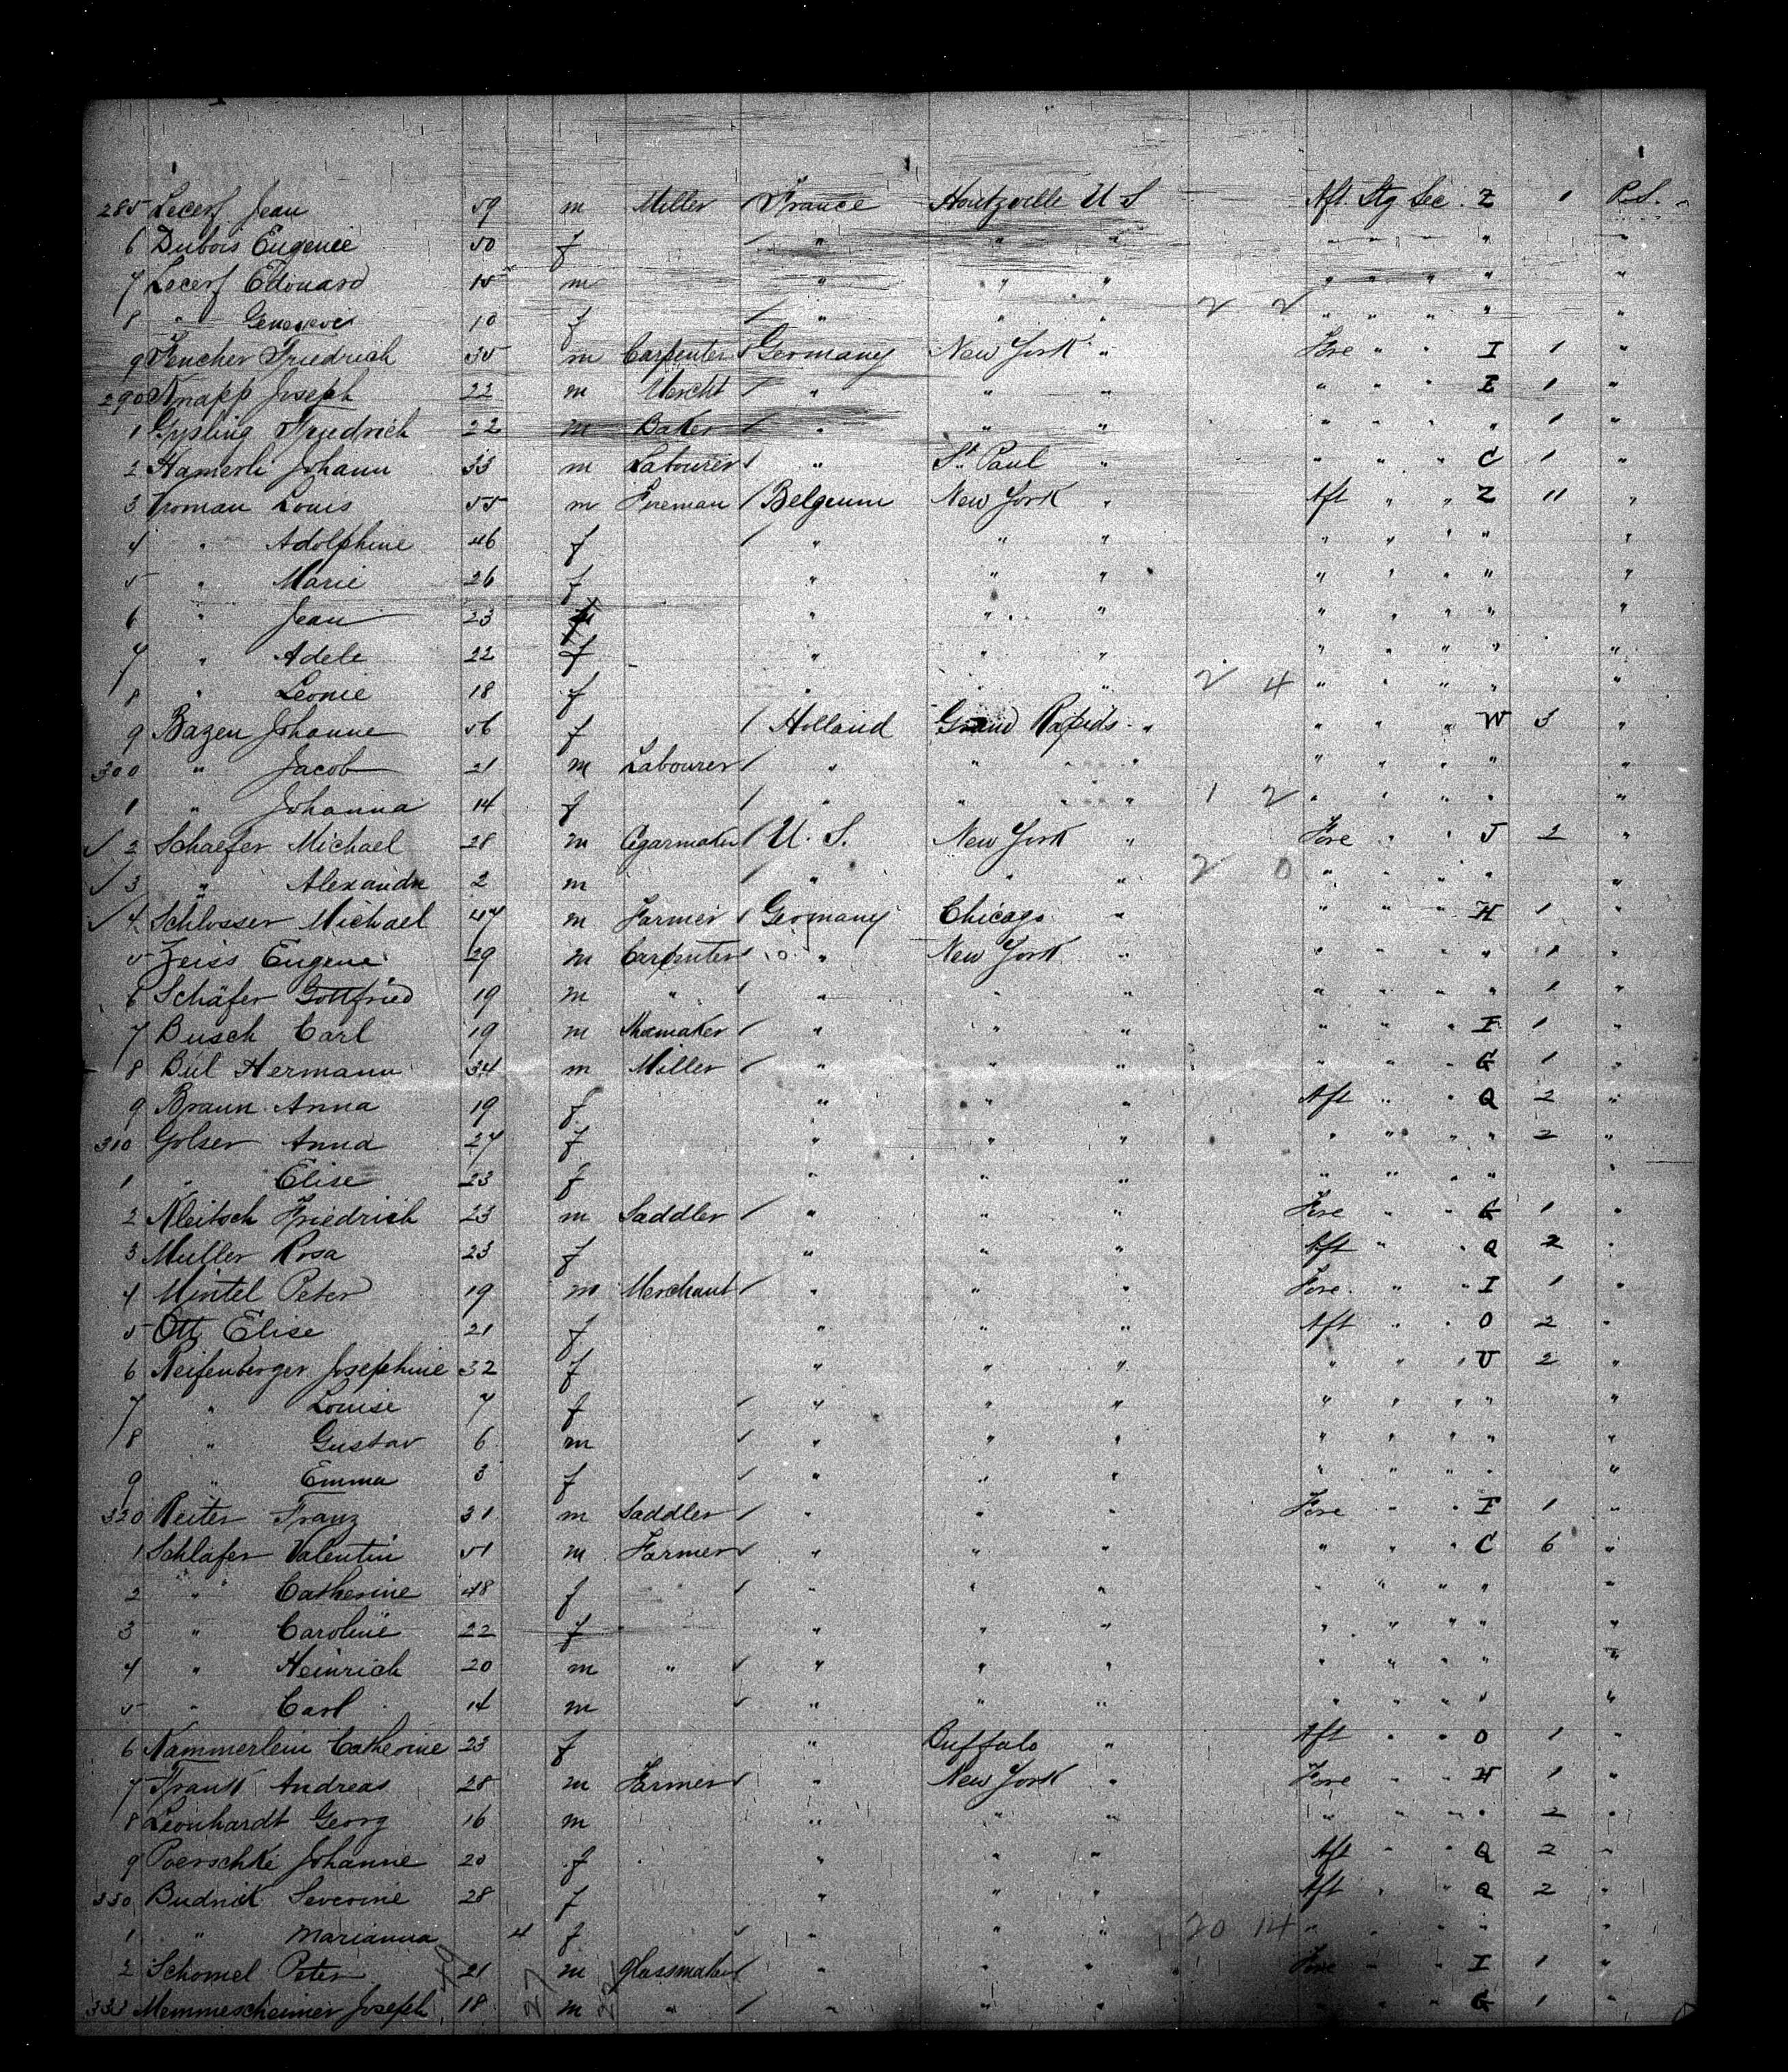 285 Lecerf Jean 59 m Miller France Houtzville U S Aft. Stg Sec. Z 1 P.S.
6 Dubois Eugenie 50 f " " " " " " " "
7 Lecerf Edouard 15 m " " " " " " " "
8 " Genevieve 10 f " " " 2 2 " " " " "
9 Fencher Friedrich 35 m Carpenter Germany New York " Fore " " I 1 "
290 Knapp Joseph 22 m Mercht " " " " " " I 1 "
1 Gysling Friedrich 22 m Baker " " " " " " " 1 "
2 Hamerli Johann 33 m Labourer " St. Paul " " " " C 1 "
3 Vroman Louis 55 m Fireman Belgium New York " Aft " " Z 11 "
4 " Adolphine 46 f " " " " " " " "
5 " Marie 26 f " " " " " " " "
6 " Jean 23 " " " " " " " "
7 " Adele 22 f " " " " " " " "
8 " Leonie 18 f " " " 2 4 " " " " "
9 Bazen Johanne 56 f Holland Grand Rapids " " " " W 3 "
300 " Jacob 21 m Labourer " " " " " " " " "
1 " Johanna 14 f " " " " 1 2 " " " " "
2 Schaefer Michael 28 m Cigarmaker U. S. New York " Fore " " J 2 "
3 " Alexandre 2 m " " " 2 0 " " " " "
4 Schlosser Michael 47 m Farmer Germany Chicago " " " " H 1 "
5 Zeiss Eugene 29 m Carpenter " New York " " " " " 1 "
6 Schäfer Gottfried 19 m " " " " " " " " 1 "
7 Busch Carl 19 m Shoemaker " " " " " " I 1 "
8 Bul Hermann 34 m Miller " " " " " " G 1 "
9 Braun Anna 19 f " " " Aft " " Q 2 "
310 Golser Anna 27 f " " " " " " " 2 "
1 " Elise 23 f " " " " " " " "
2 Kleitsch Friedrich 23 m Saddler " " " Fore " " G 1 "
3 Muller Rosa 23 f " " " Aft " " Q 2 "
4 Mintel Peter 19 m Merchant " " " Fore " " I 1 "
5 Ott Elise 21 f " " " Aft " " O 2 "
6 Reifenberger Josephine 32 f " " " " " " U 2 "
7 " Louise 7 f " " " " " " " "
8 " Gustav 6 m " " " " " " " "
9 " Emma 3 f " " " " " " " "
320 Reiter Franz 31 m Saddler " " " Fore " " I 1 "
1 Schlafer Valentin 51 m Farmer " " " " " " C 6 "
2 " Catherine 48 f " " " " " " " "
3 " Caroline 22 f " " " " " " " "
4 " Heinrich 20 m " " " " " " " " "
5 " Carl 14 m " " " " " " " "
6 Kammerlein Catherine 23 f " Buffalo " Aft " " O 1 "
7 Frank Andreas 28 m Farmer " New York " Fore " " H 1 "
8 Leonhardt Georg 16 m " " " " " " " 2 "
9 Poerschke Johanne 20 f " " " Aft " " Q 2 "
330 Budnick Severine 28 f " " " Aft " " Q 2 "
1 " Marianna 4 f " " " 20 14 " " " " "
2 Schomel Peter 21 m Glassmaker " " " Fore " " I 1 "
333 Memmescheimer Joseph 18 m " " " " " " " G 1 "